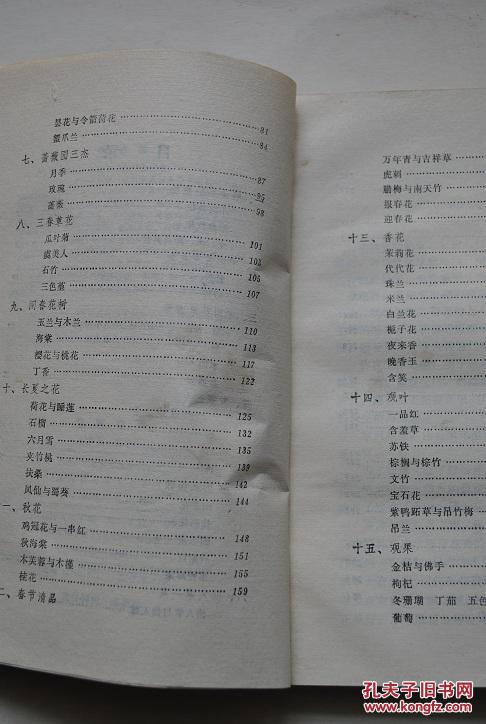 昙花与令箭荷花 81
蟹爪兰 84
七、蔷薇园三杰
月季 87
玫瑰 95
蔷薇 98
八、三春草花
瓜叶菊 101
虞美人 103
石竹 105
三色堇 107
九、闹春花树
玉兰与木兰 110
海棠 113
樱花与桃花 117
丁香 122
十、长夏之花
荷花与睡莲 125
石榴 132
六月雪 135
夹竹桃 139
扶桑 142
凤仙与蜀葵 144
一、秋花
鸡冠花与一串红 148
秋海棠 151
木芙蓉与木槿 155
桂花 159
二、春节清品
万年青与吉祥草
虎刺
腊梅与南天竹
报春花
迎春花
十三、香花
茉莉花
代代花
珠兰
米兰
白兰花
栀子花
夜来香
晚香玉
含笑
十四、观叶
一品红
含羞草
苏铁
棕榈与棕竹
文竹
宝石花
紫鸭跖草与吊竹梅
吊兰
十五、观果
金桔与佛手
枸杞
冬珊瑚 丁茄 五色
葡萄
孔夫子旧书网
KONGFZ.COM